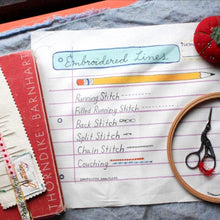 Embroidered Lines
Running Stitch
Filled Running Stitch
Back Stitch
Split Stitch
Chain Stitch
Couching
THORNDIKE-BARNHART